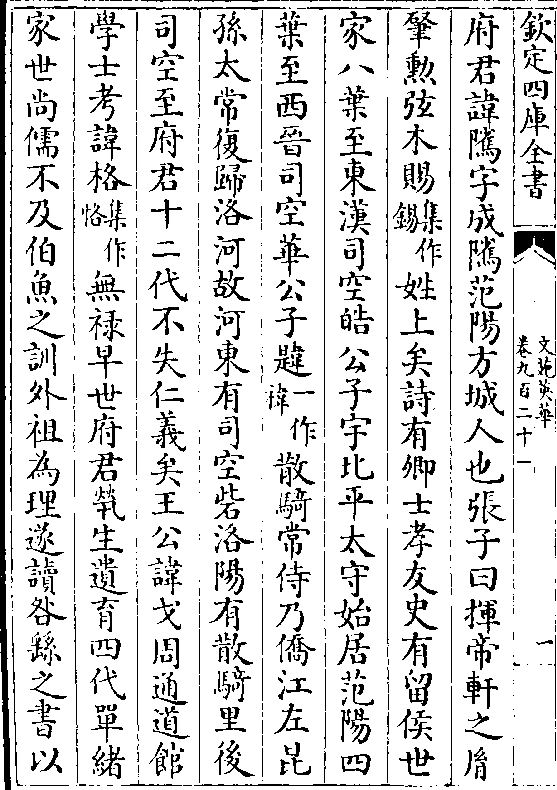 欽定四庫全書
文苑英華
卷九百二十一
一
府君諱隲字成隲范陽方城人也張子曰揮帝軒之胤
肇勲弦木賜集作錫姓上矣詩有卿士孝友史有留侯世
家八葉至東漢司空皓公子宇比平太守始居范陽四
葉至西晉司空華公子韙一作禕散騎常侍乃僑江左昆
孫太常復歸洛河故河東有司空砦洛陽有散騎里後
司空至府君十二代不失仁義矣王公諱戈周通道館
學士考諱格集作恪無祿早世府君煢生遺育四代單緒
家世尚儒不及伯魚之訓外祖為理遂讀咎繇之書以